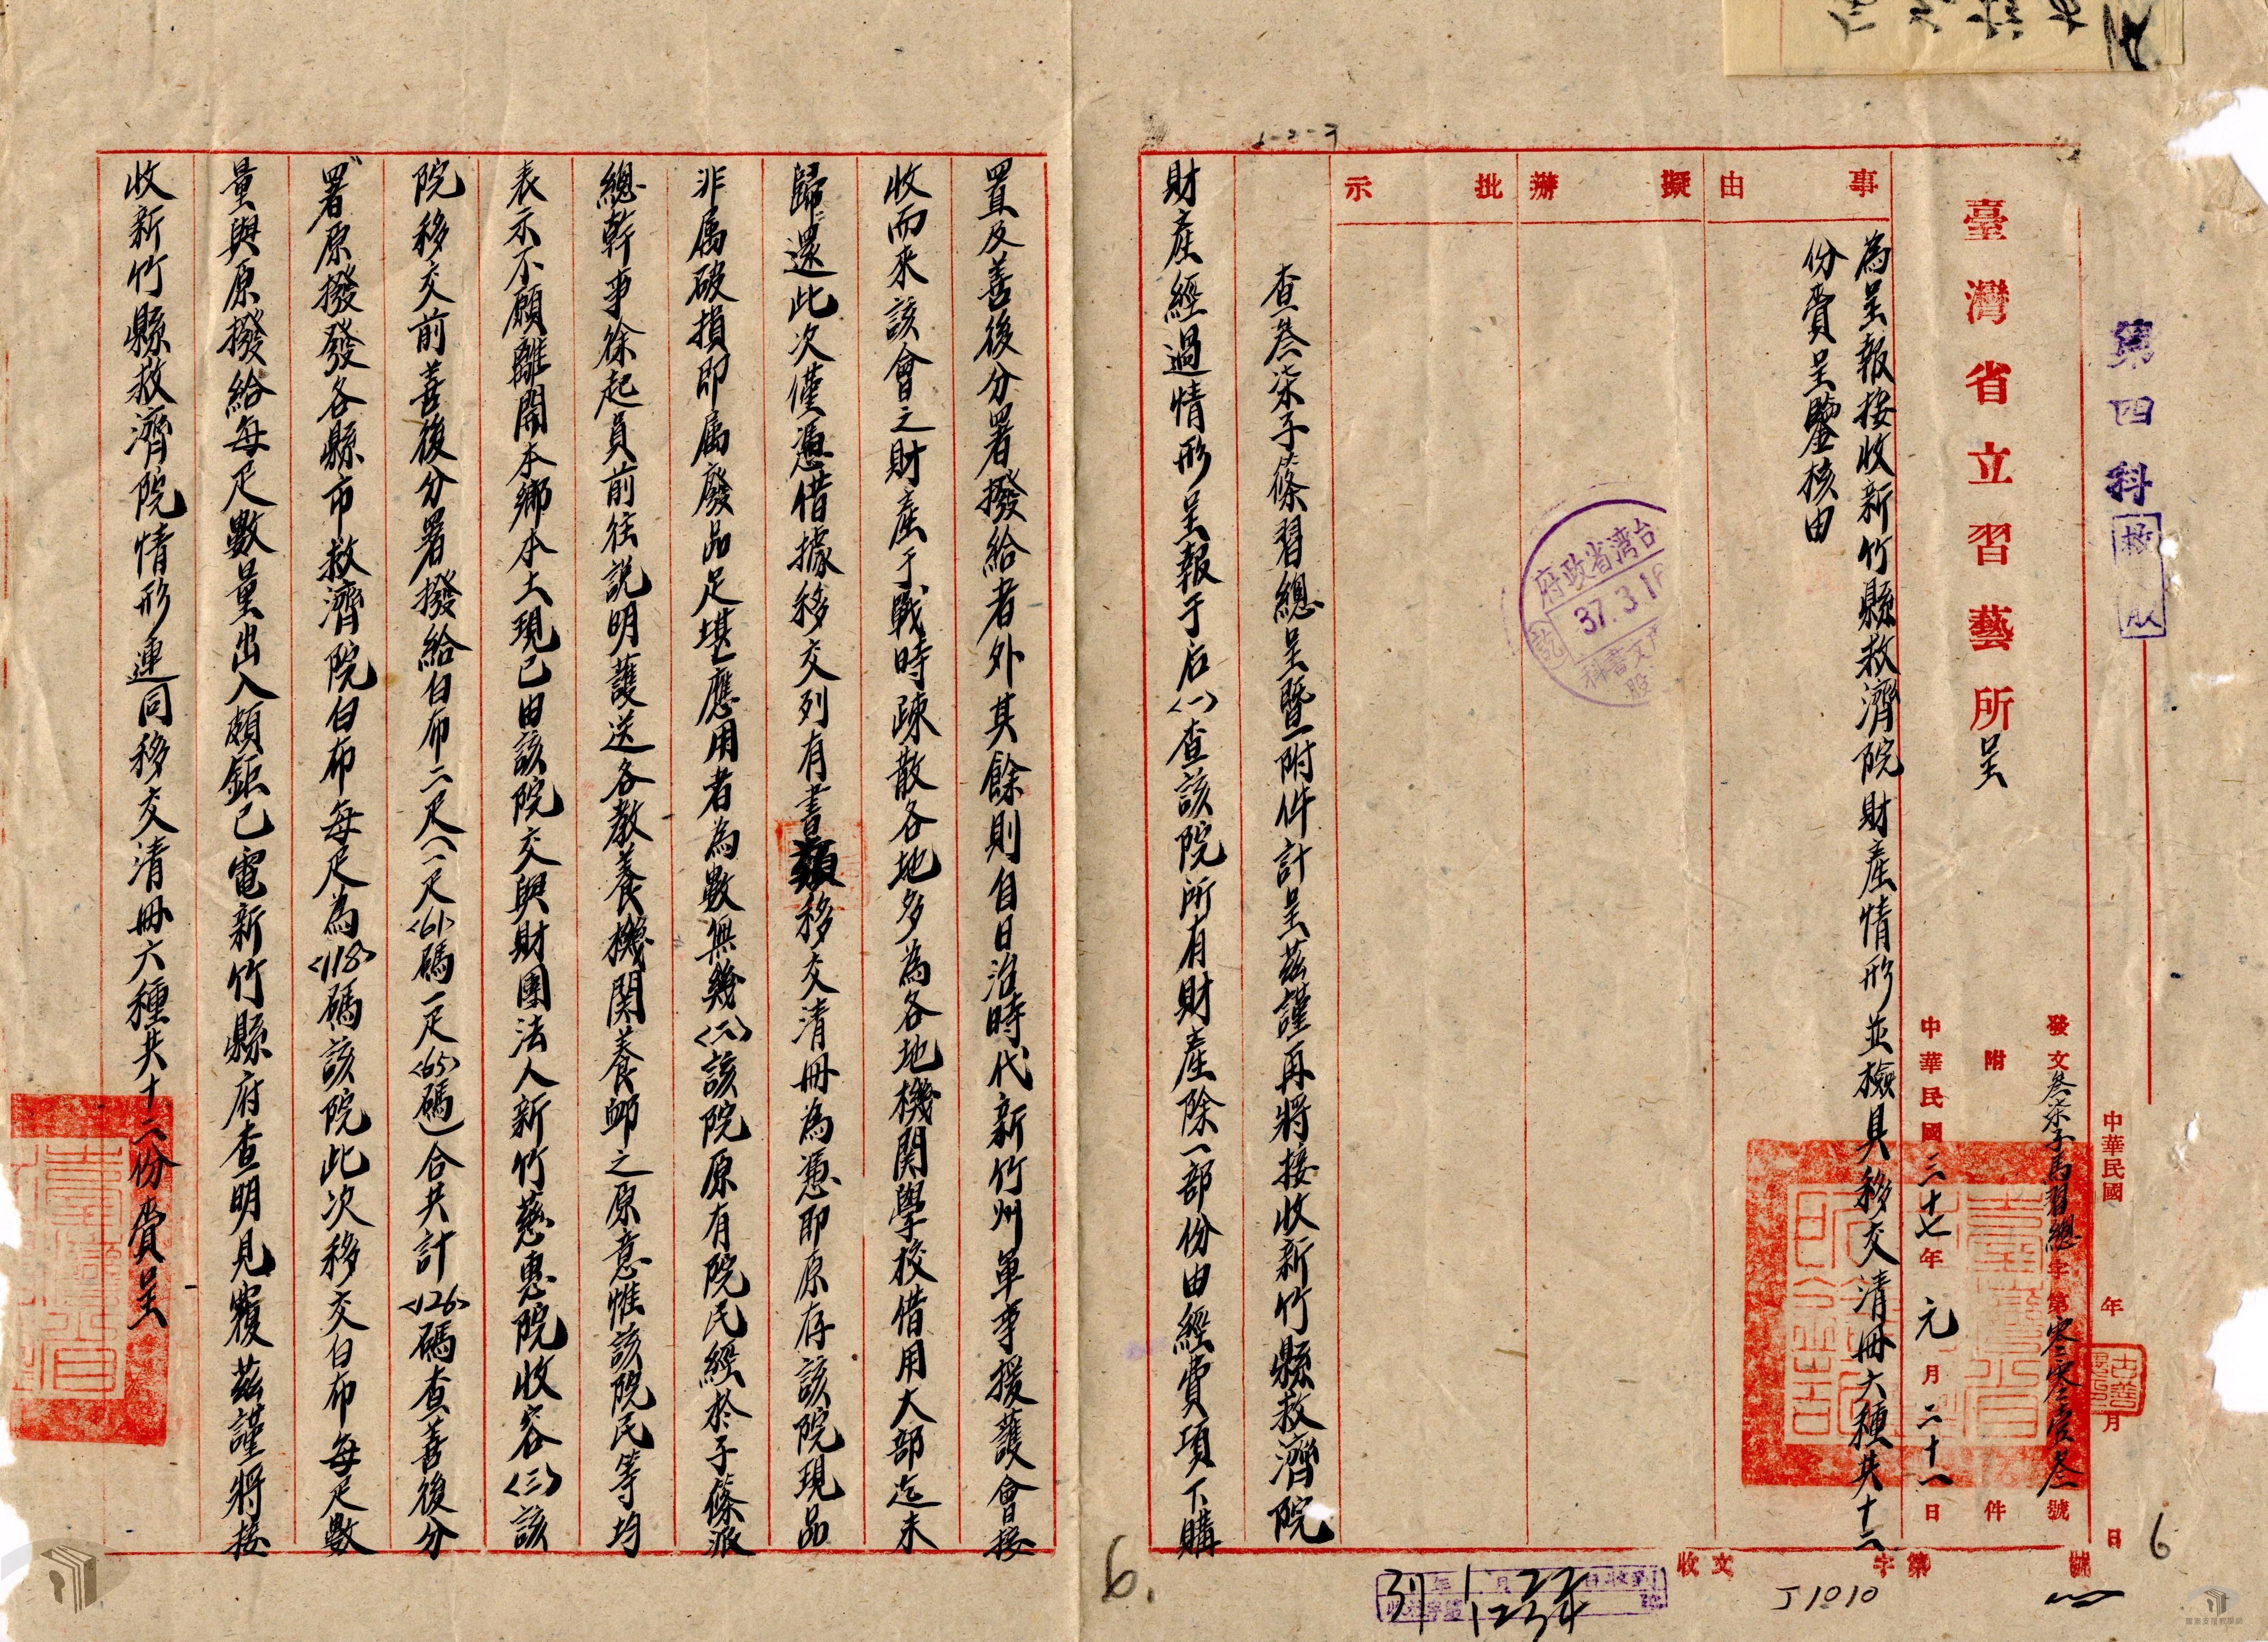 第四科
中華民國 年 月 日
臺灣省立習藝所呈
發文叁柒子馬習總 年 第零零壹叁號
附 件
中華民國三十七年元月二十一日
事由
為呈報接收新竹縣救濟院財產情形並檢具移交清冊六種共十二
份賫呈鑒核由
擬辦
批示
台湾省政府
37.3.1
查叁柒子篠習總呈暨附件計呈茲謹再將接收新竹縣救濟院
財產經過情形呈報于后〈一〉查該院所有財產除一部份由經費項下購
置及善後分署撥給者外其餘則自日治時代新竹州軍事援護會接
收而來該會之財產于戰時疎散各地多為各地機関學校借用大部迄未
歸還此次僅憑借據移交列有書類移交清冊為憑即原存該院現品
非属破損即属廢品足堪應用者為數無幾〈二〉該院原有院民經於子篠派
總幹事徐起員前往説明護送各教養機関養卹之原意惟該院民等均
表示不願離開本鄉本土現已由該院交與財團法人新竹慈惠院收容〈三〉該
院移交前善後分署撥給白布二疋(一疋〈61〉碼一疋〈65〉碼)合共計〈126〉碼查善後分
署原撥發各縣市救濟院白布每疋為〈118〉碼該院此次移交白布每疋數
量與原撥給每疋數量出入頗鉅已電新竹縣府查明見覆茲謹將接
收新竹縣救濟院情形連同移交清冊六種共十二份賫呈
收文 字第 號
J1010
37 年 1 月 22 日
1234
6
6.